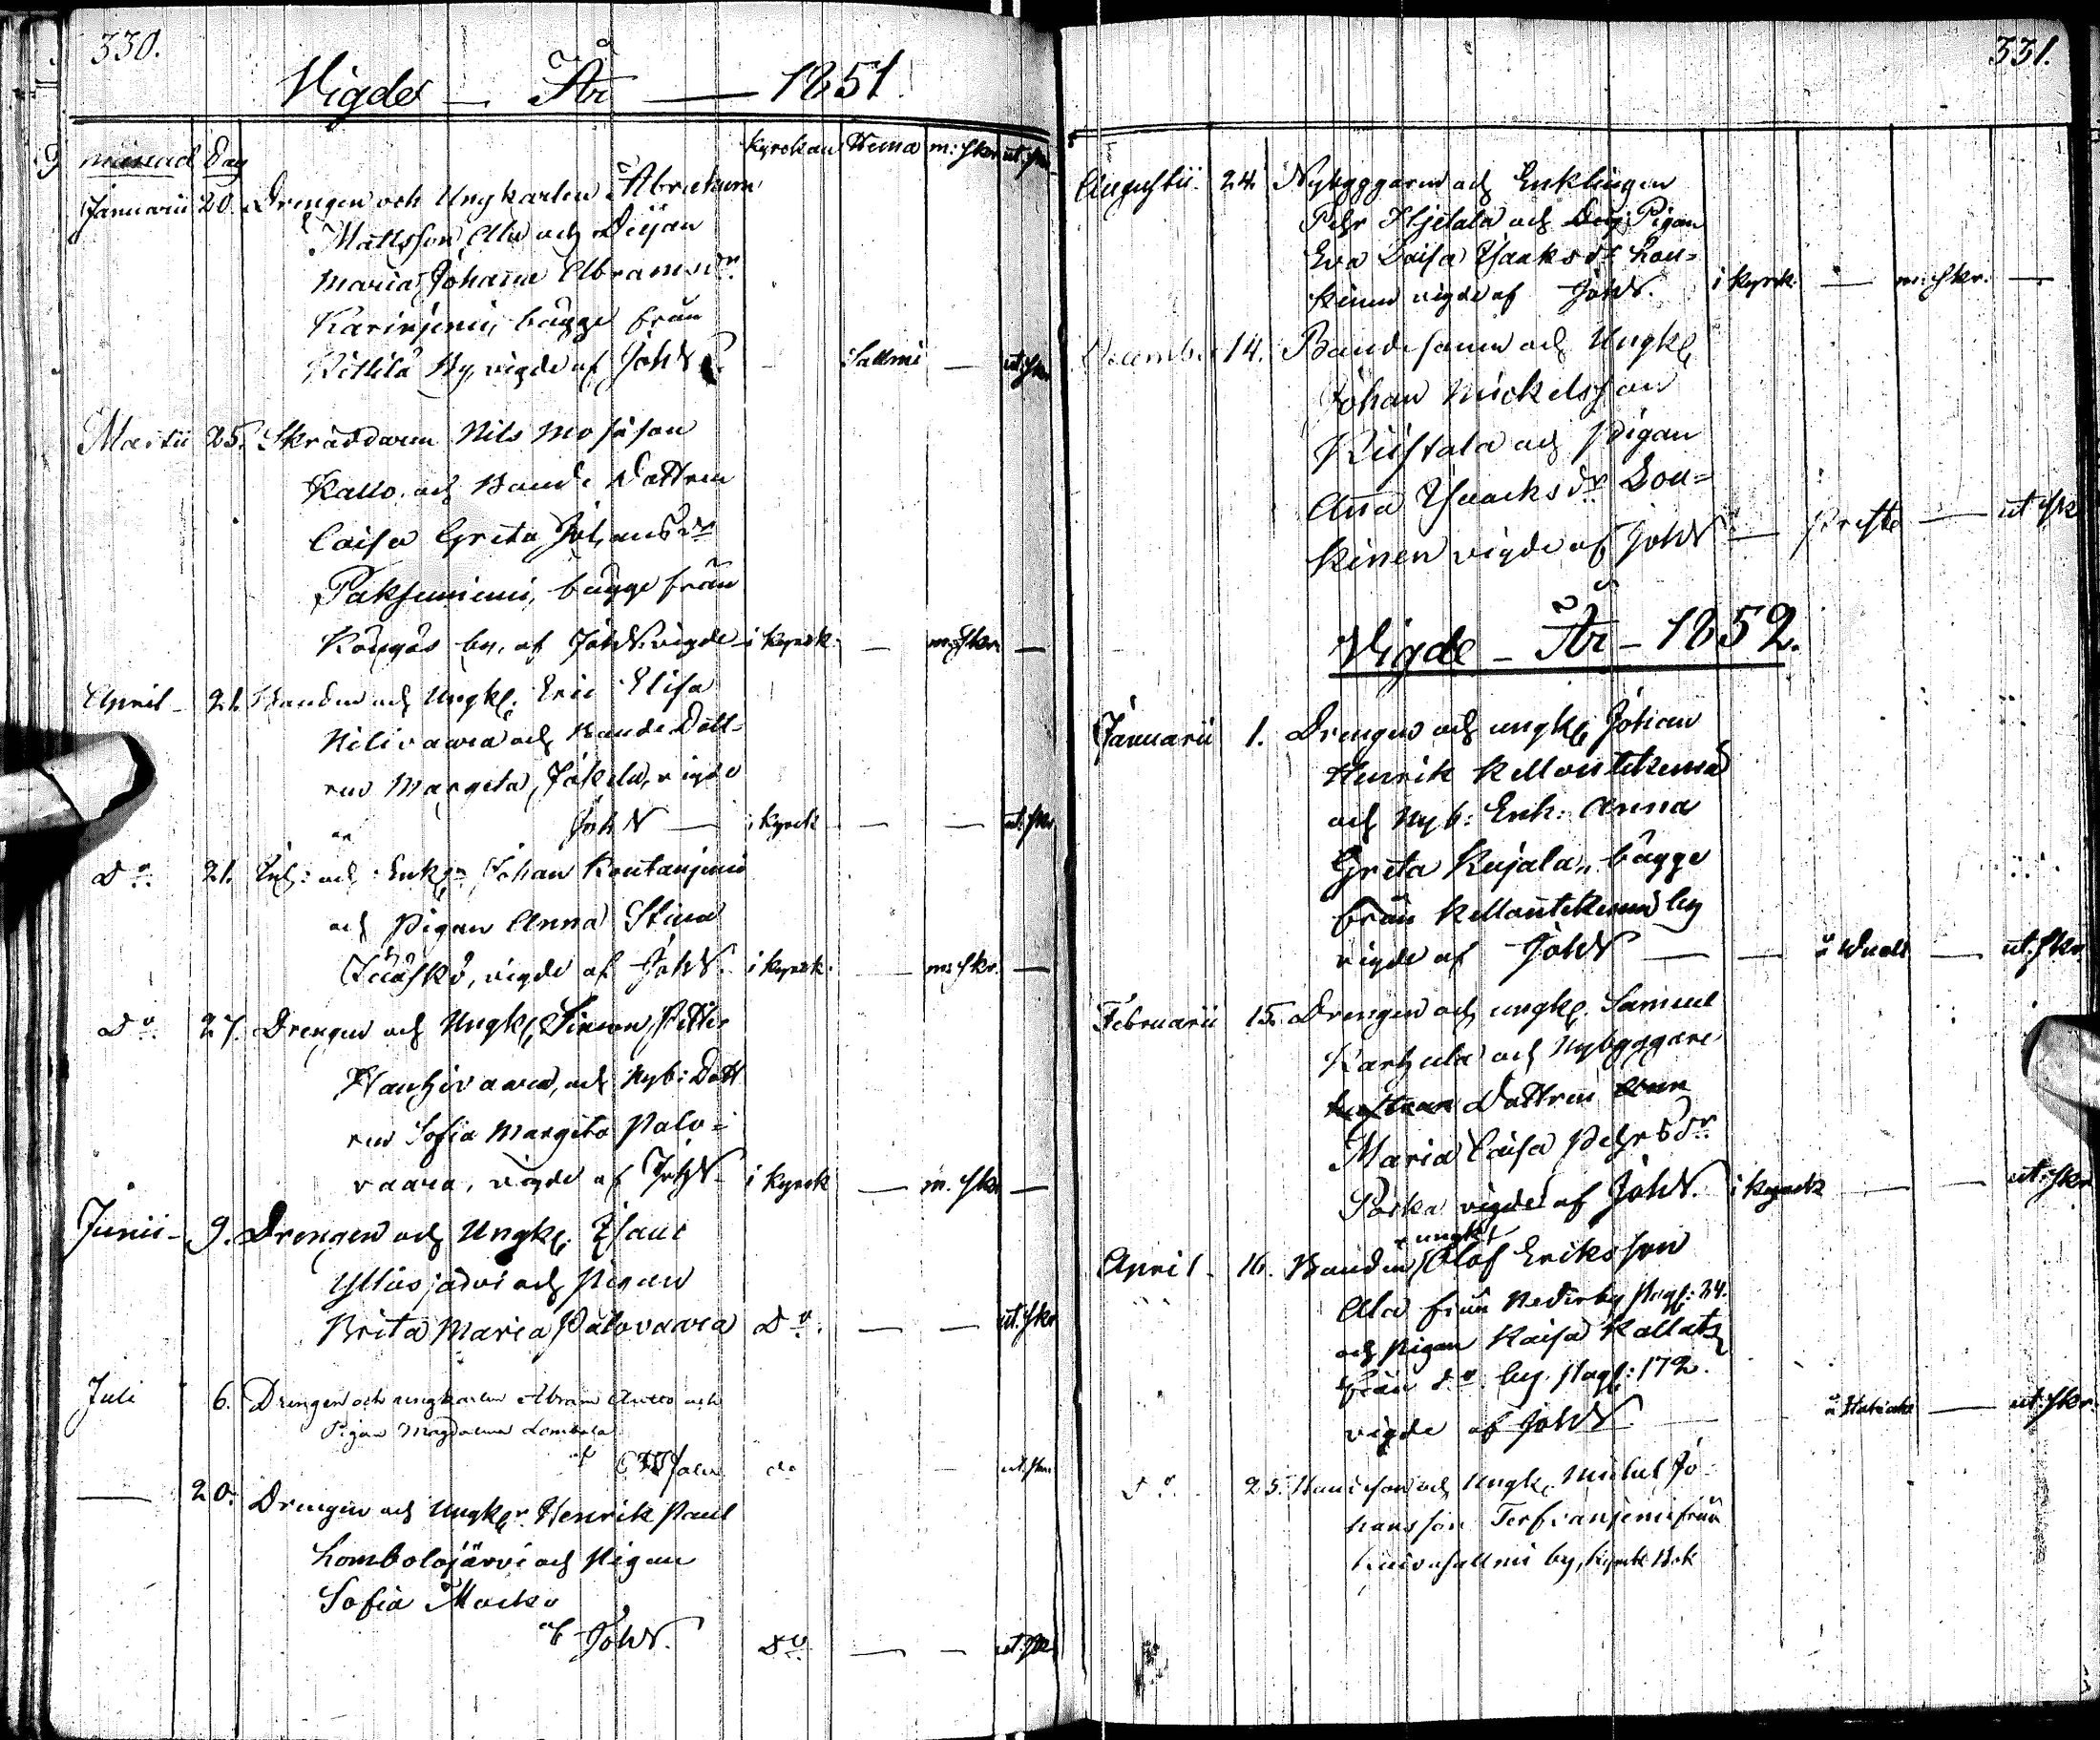 330.
Vigde — År — 1851.
månad Dag kyrckan Hema m: skr ut: skr
Januarii 20. Drengen och Ungkarlen Abraham
Mattsson Ala och Pijan
Maria Johanna Abramsdr.
Karinjemi, bägge från
Kittilä By, vigde af Joh N. — Sallmi — ut: skr
Martii 25. Skräddaren Nils Mosisson
Kallo. och Bonde Dottren
Caisa Greta Johansdr
Paksuniemi, bägge från
Köngäs by, af Joh N. vigde i kyrck. — m: skr. —
April 21. Bonden och Ungk. Eric Elisa
Nilivaara och Bonde Dott-
ren Margeta Jäkela, vigde
af Joh N — i kyrck — — ut: skr
Do. 21. och Enk. Johan Koutanjemi
och Pigan Anna Stina
Jääskö, vigde af Joh N. i kyrck. — m: skr. —
Do. 27. Drengen och Ungk. Simon Petter
Hanhivaara, och Nyb: Dott
ren Sofia Margeta Palo-
vaara, vigde af Joh N. i kyrck — m. skr —
Junii - 9. Drengen och Ungk. Isaac
Ylläsjärvi och Pigan
Brita Maria Palovaara Do. — — ut: skr
Juli 6. Drengen och ungkarlen Abram och
Pigan Magdalena Lombola
af do — ut: skr
— 20. Drengen och Ungker. Henrik Paul
Lombolojärvi och Pigan
Sofia Mocko
af Joh N. Do. — — ut: skr
331.
Augustii. 24. Nybyggaren och Enklingen
Pehr Hjetala och Pigan
Eva Caisa Isaksdr Lou-
kinen vigde af Joh N. i kyrck. — m: skr. —
December 14. Bondesonen och Ungk.
Johan Mickelsson
Riistala och Pigan
Anna Isaacksdr Lou-
kinen vigde af Joh N — — ut: skr
Vigde - År - 1852.
Januarii 1. Drengen och ungk. Johan
Henrik Kellontekemä
och Nyb: Enk: Anna
Greta Kujala, bägge
från Kellontekemä by
vigde af Joh N — — — ut: skr
Februarii 15. Drengen och ungk. Samuel
Karhula och Nybyggare
Dottren
Maria Caisa Pehrsdr.
Pocka vigde af Joh N. i kyrck — — ut: skr
April - 16. Bonden Olof Eriksson
ungk:
Ala från Nederby Pag: 34.
och Pigan Kaisa Kallatz
från do. by. Pag: 172.
vigde af Joh N. — — ut: skr.
Do. 25. Bondeson och Ungk. Jo-
hansson från
by, Kyrck Bok